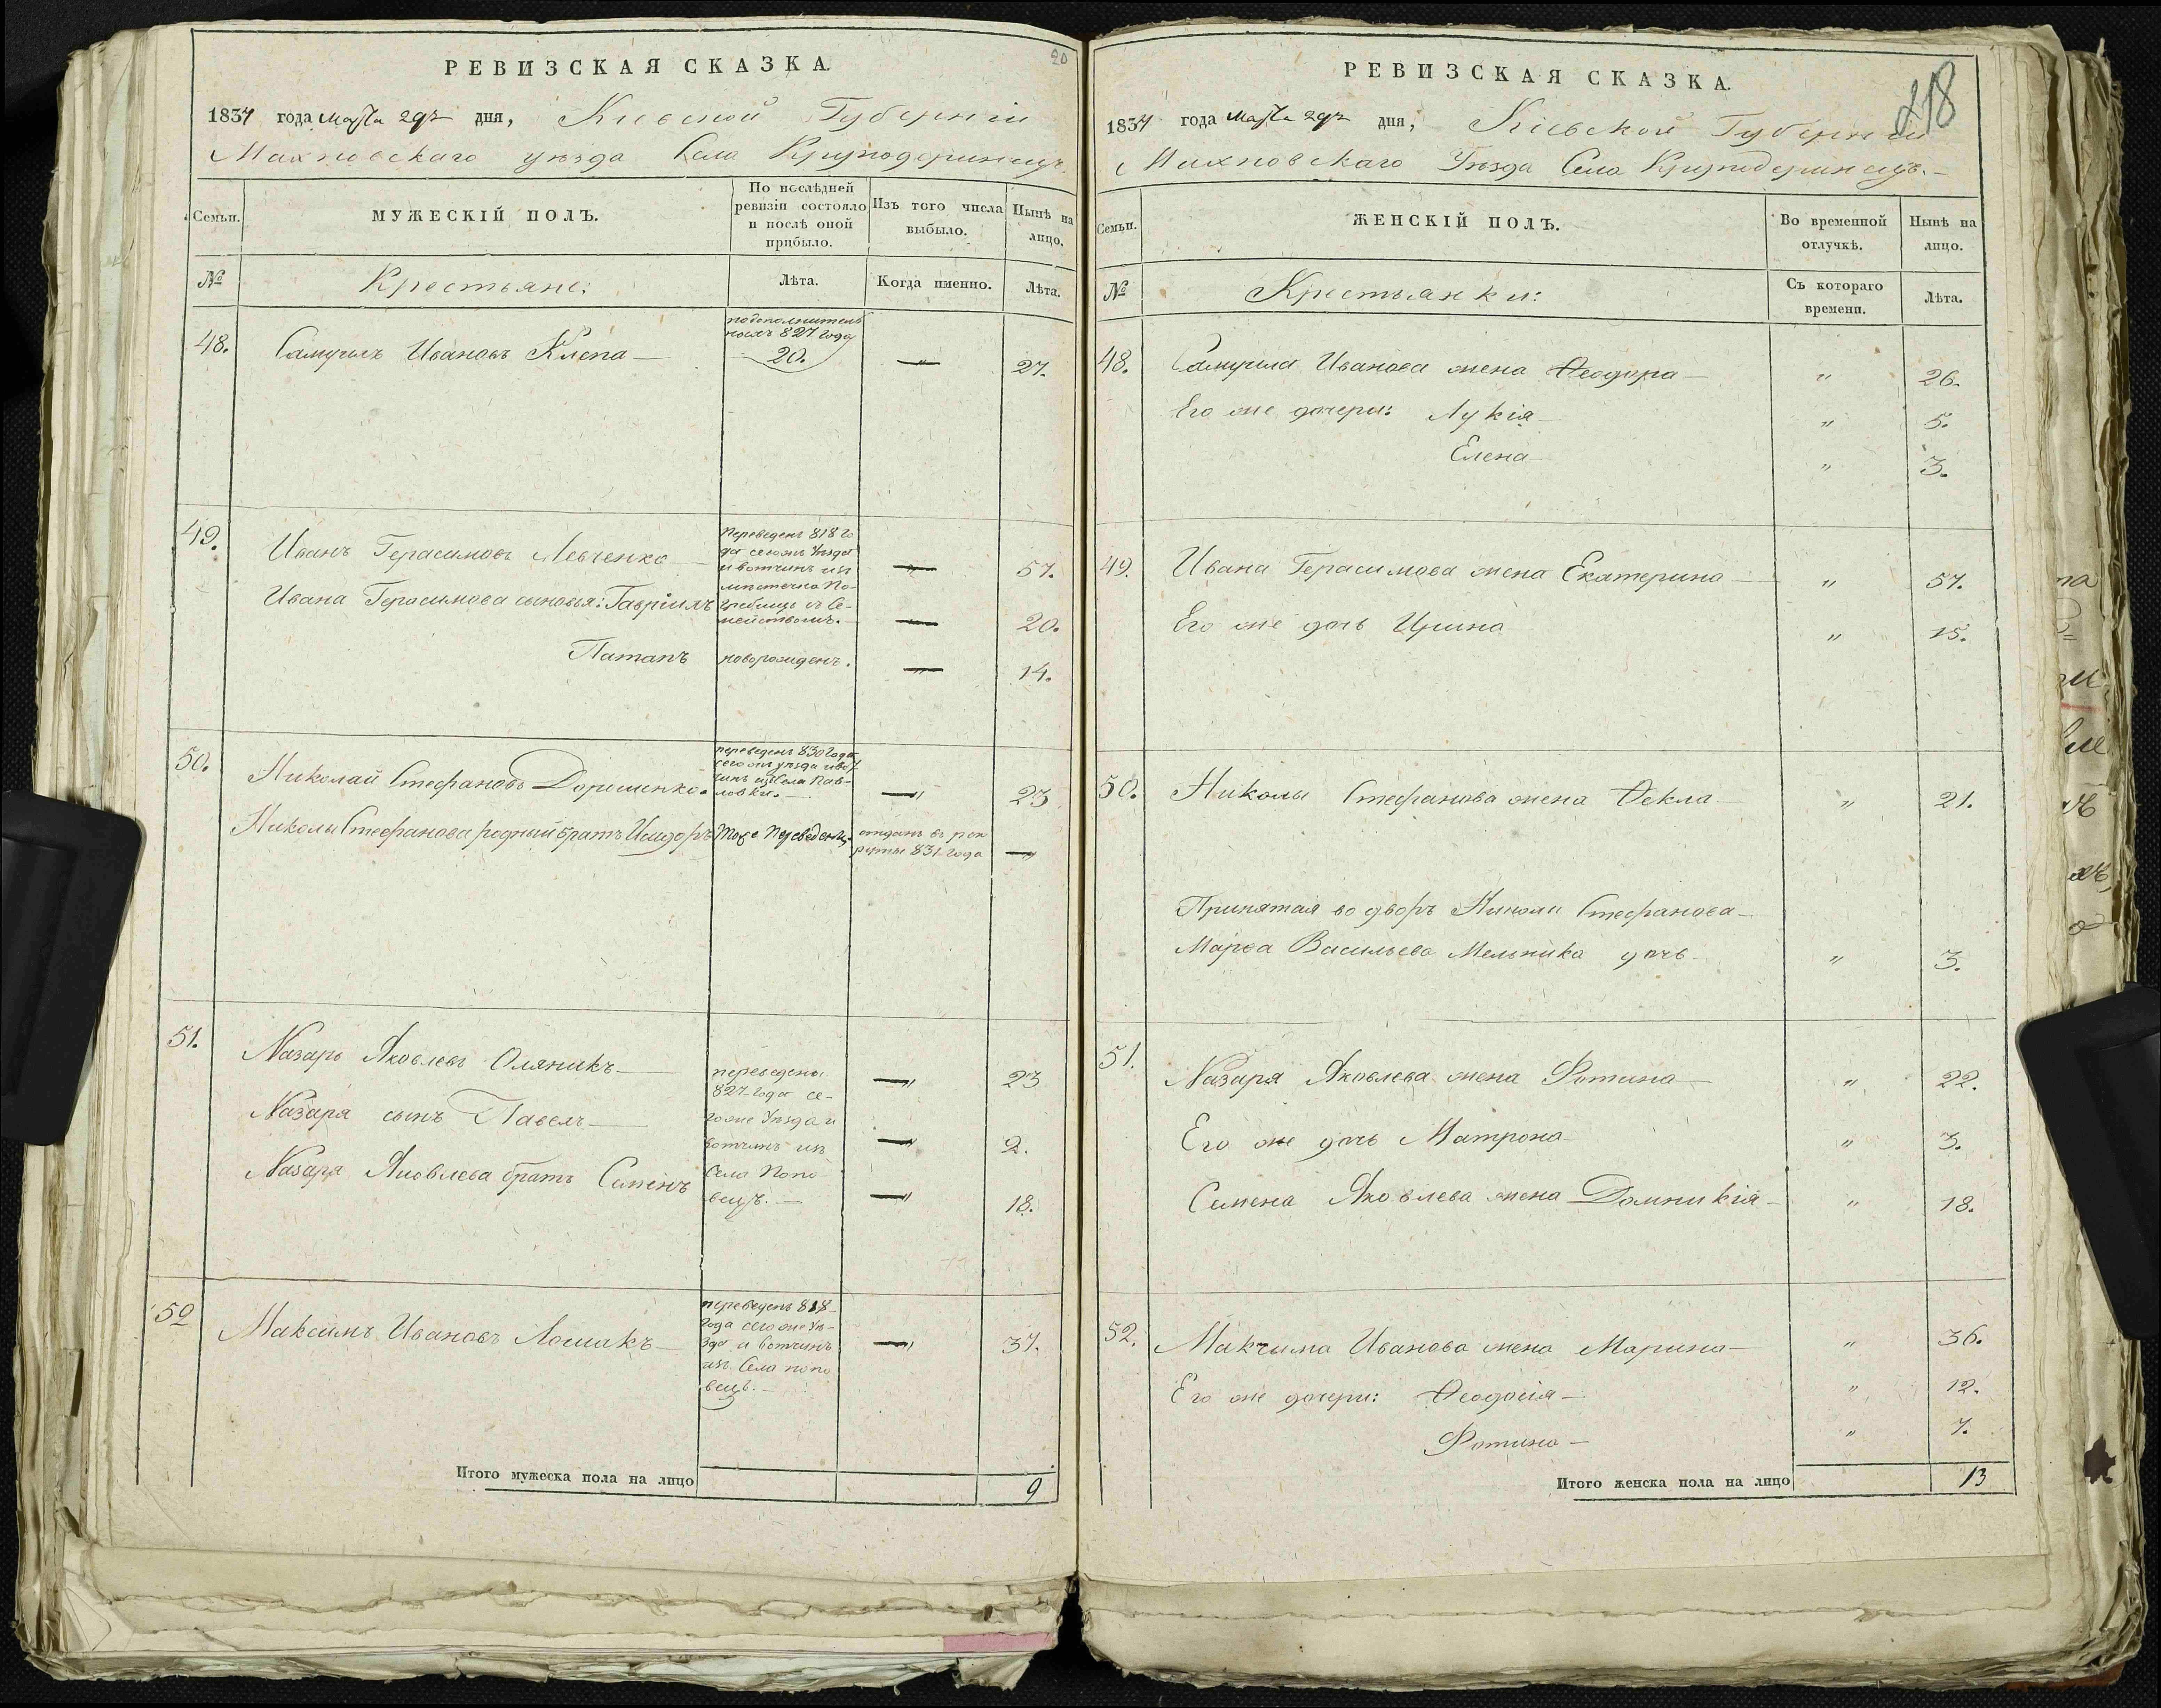 20
РЕВИЗСКАЯ СКАЗКА.
1834 года Марта 29го дня, Киевской Губерніи
Махновскаго уѣзда Села Круподеринецъ
Семьи.
МУЖЕСКІЙ ПОЛЪ.
По послѣдней ревизіи состояло и послѣ оной прибыло.
Изъ того числа выбыло.
Нынѣ на лицо.
№
Крестьяне:
Лѣта.
Когда именно.
Лѣта.
подополнитель
ной 827 года
48. Самуилъ Ивановъ Клепа — 20. —„ 27.
49. Иванъ Герасимовъ Левченко — —„ 57.
Переведенъ 818 го
да сегожъ Уѣзда
и вотчинъ изъ
мѣстечка По-
гребищъ съ Се-
мействомъ.
Ивана Герасимова сыновья: Гавріилъ —„ 20.
Патапъ новорожденъ. —„ 14.
50. Николай Стефановъ Дорошенко. —„ 23
переведенъ 830 года
сегожъ уѣзда и вот
чинъ изъ Села Пав-
ловки.
Николы Стефанова родный братъ Исидоръ Тоже Переведенъ. отданъ въ рек
руты 831 года —„
51. Назаръ Яковлевъ Оляникъ — —„ 23
переведены
827 года се-
гоже Уѣзда и
вотчинъ изъ
Села Попо
вецъ. —
Назаря сынъ Павелъ — —„ 2.
Назаря Яковлева братъ Семенъ —„ 18.
52 Максимъ Ивановъ Лошакъ — —„ 37.
переведенъ 818
года сегоже Уѣ-
зда и вотчинъ
изъ Села попо
вецъ. —
Итого мужеска пола на лицо 9
218
РЕВИЗСКАЯ СКАЗКА.
1834 года Марта 29го дня, Кіевской Губерніи
Махновскаго Уѣзда Села Круподеринецъ. —
Семьи.
ЖЕНСКІЙ ПОЛЪ.
Во временной отлучкѣ.
Нынѣ на лицо.
№
Крестьянки:
Съ котораго времени.
Лѣта.
48. Самуила Иванова жена Ѳеодора — „ 26.
Его же дочери: Лукія — „ 5.
Елена — „ 3.
49. Ивана Герасимова жена Екатерина — „ 57.
Его же дочь Ирина „ 15.
50. Николы Стефанова жена Ѳекла — „ 21.
Принятая во дворъ Николы Стефанова —
Марѳа Васильева Мельника дочь — „ 3.
51. Назаря Яковлева жена Фотина — „ 22.
Его же дочь Матрона — „ 3.
Семена Яковлева жена Домникія — „ 18.
52. Максима Иванова жена Марина — „ 36.
Его же дочери: Ѳеодосія — „ 12.
Фотина — „ 7.
Итого женска пола на лицо 13